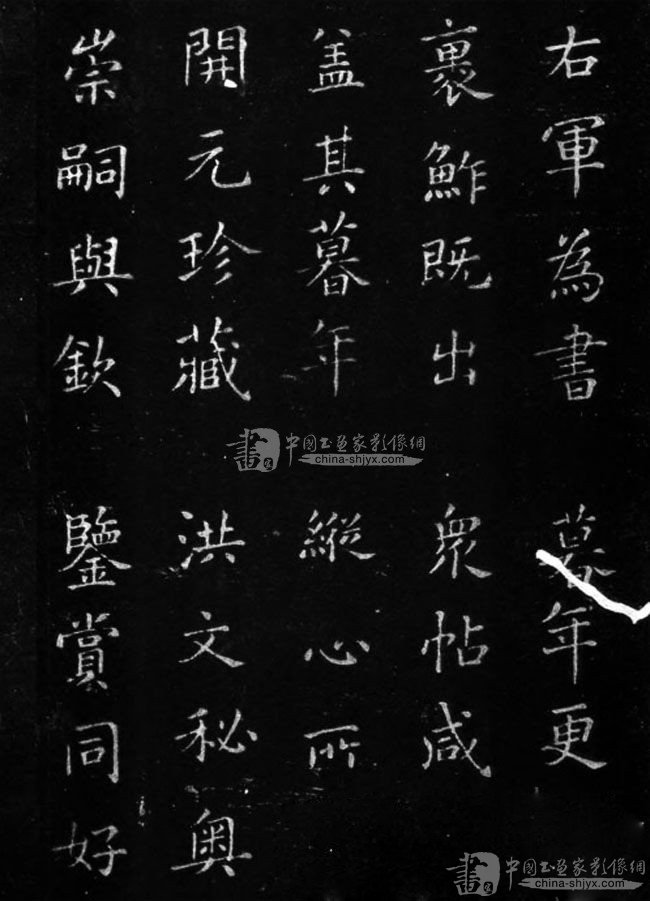 右軍為書 暮年更
裹鮓既出 衆帖咸
盖其暮年 縱心所
開元珍藏 洪文秘奥
崇嗣與欽 鑒賞同好
書 中国书画家影像網
china-shjyx.com
書 中国书画家影像網
china-shjyx.com